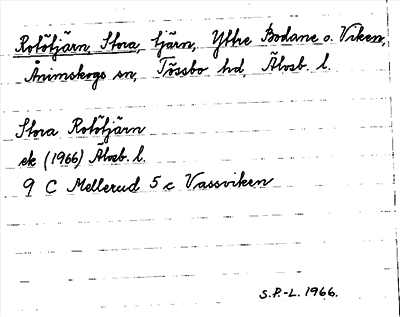 Rotötjärn, Stora, tjärn, Yttre Bodane o. Viken,
Ånimskogs sn, Tössbo hd, Älvsb. l.
Stora Rotötjärn
ek (1966) Älvsb. l.
9 C Mellerud 5 c Vassviken
S.P.-L. 1966.